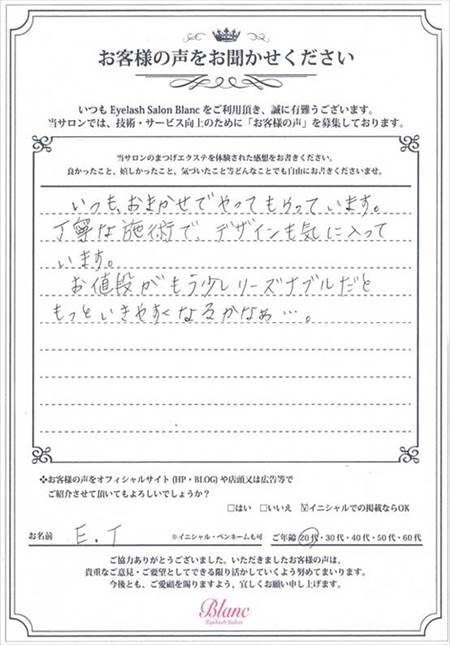 お客様の声をお聞かせください
いつも Eyelash Salon Blanc をご利用頂き、誠に有難うございます。
当サロンでは、技術・サービス向上のために「お客様の声」を募集しております。
当サロンのまつげエクステを体験された感想をお書きください。
良かったこと、嬉しかったこと、気づいたこと等どんなことでも自由にお書きくださいませ。
いつも、おまかせでやってもらっています。
丁寧な施術で、デザインも気に入って
います。
お値段がもう少しリーズナブルだと
もっといきやすくなるかなぁ…。
❖お客様の声をオフィシャルサイト (HP・BLOG) や店頭又は広告等で
ご紹介させて頂いてもよろしいでしょうか？
□はい □いいえ ☑イニシャルでの掲載ならOK
お名前 E.T ※イニシャル・ペンネームも可 ご年齢 20代・30代・40代・50代・60代
ご協力ありがとうございました。いただきましたお客様の声は、
貴重なご意見・ご要望としてできる限り活かしていくよう努めてまいります。
今後とも、ご愛顧を賜りますよう、宜しくお願い申し上げます。
Blanc
Eyelash Salon